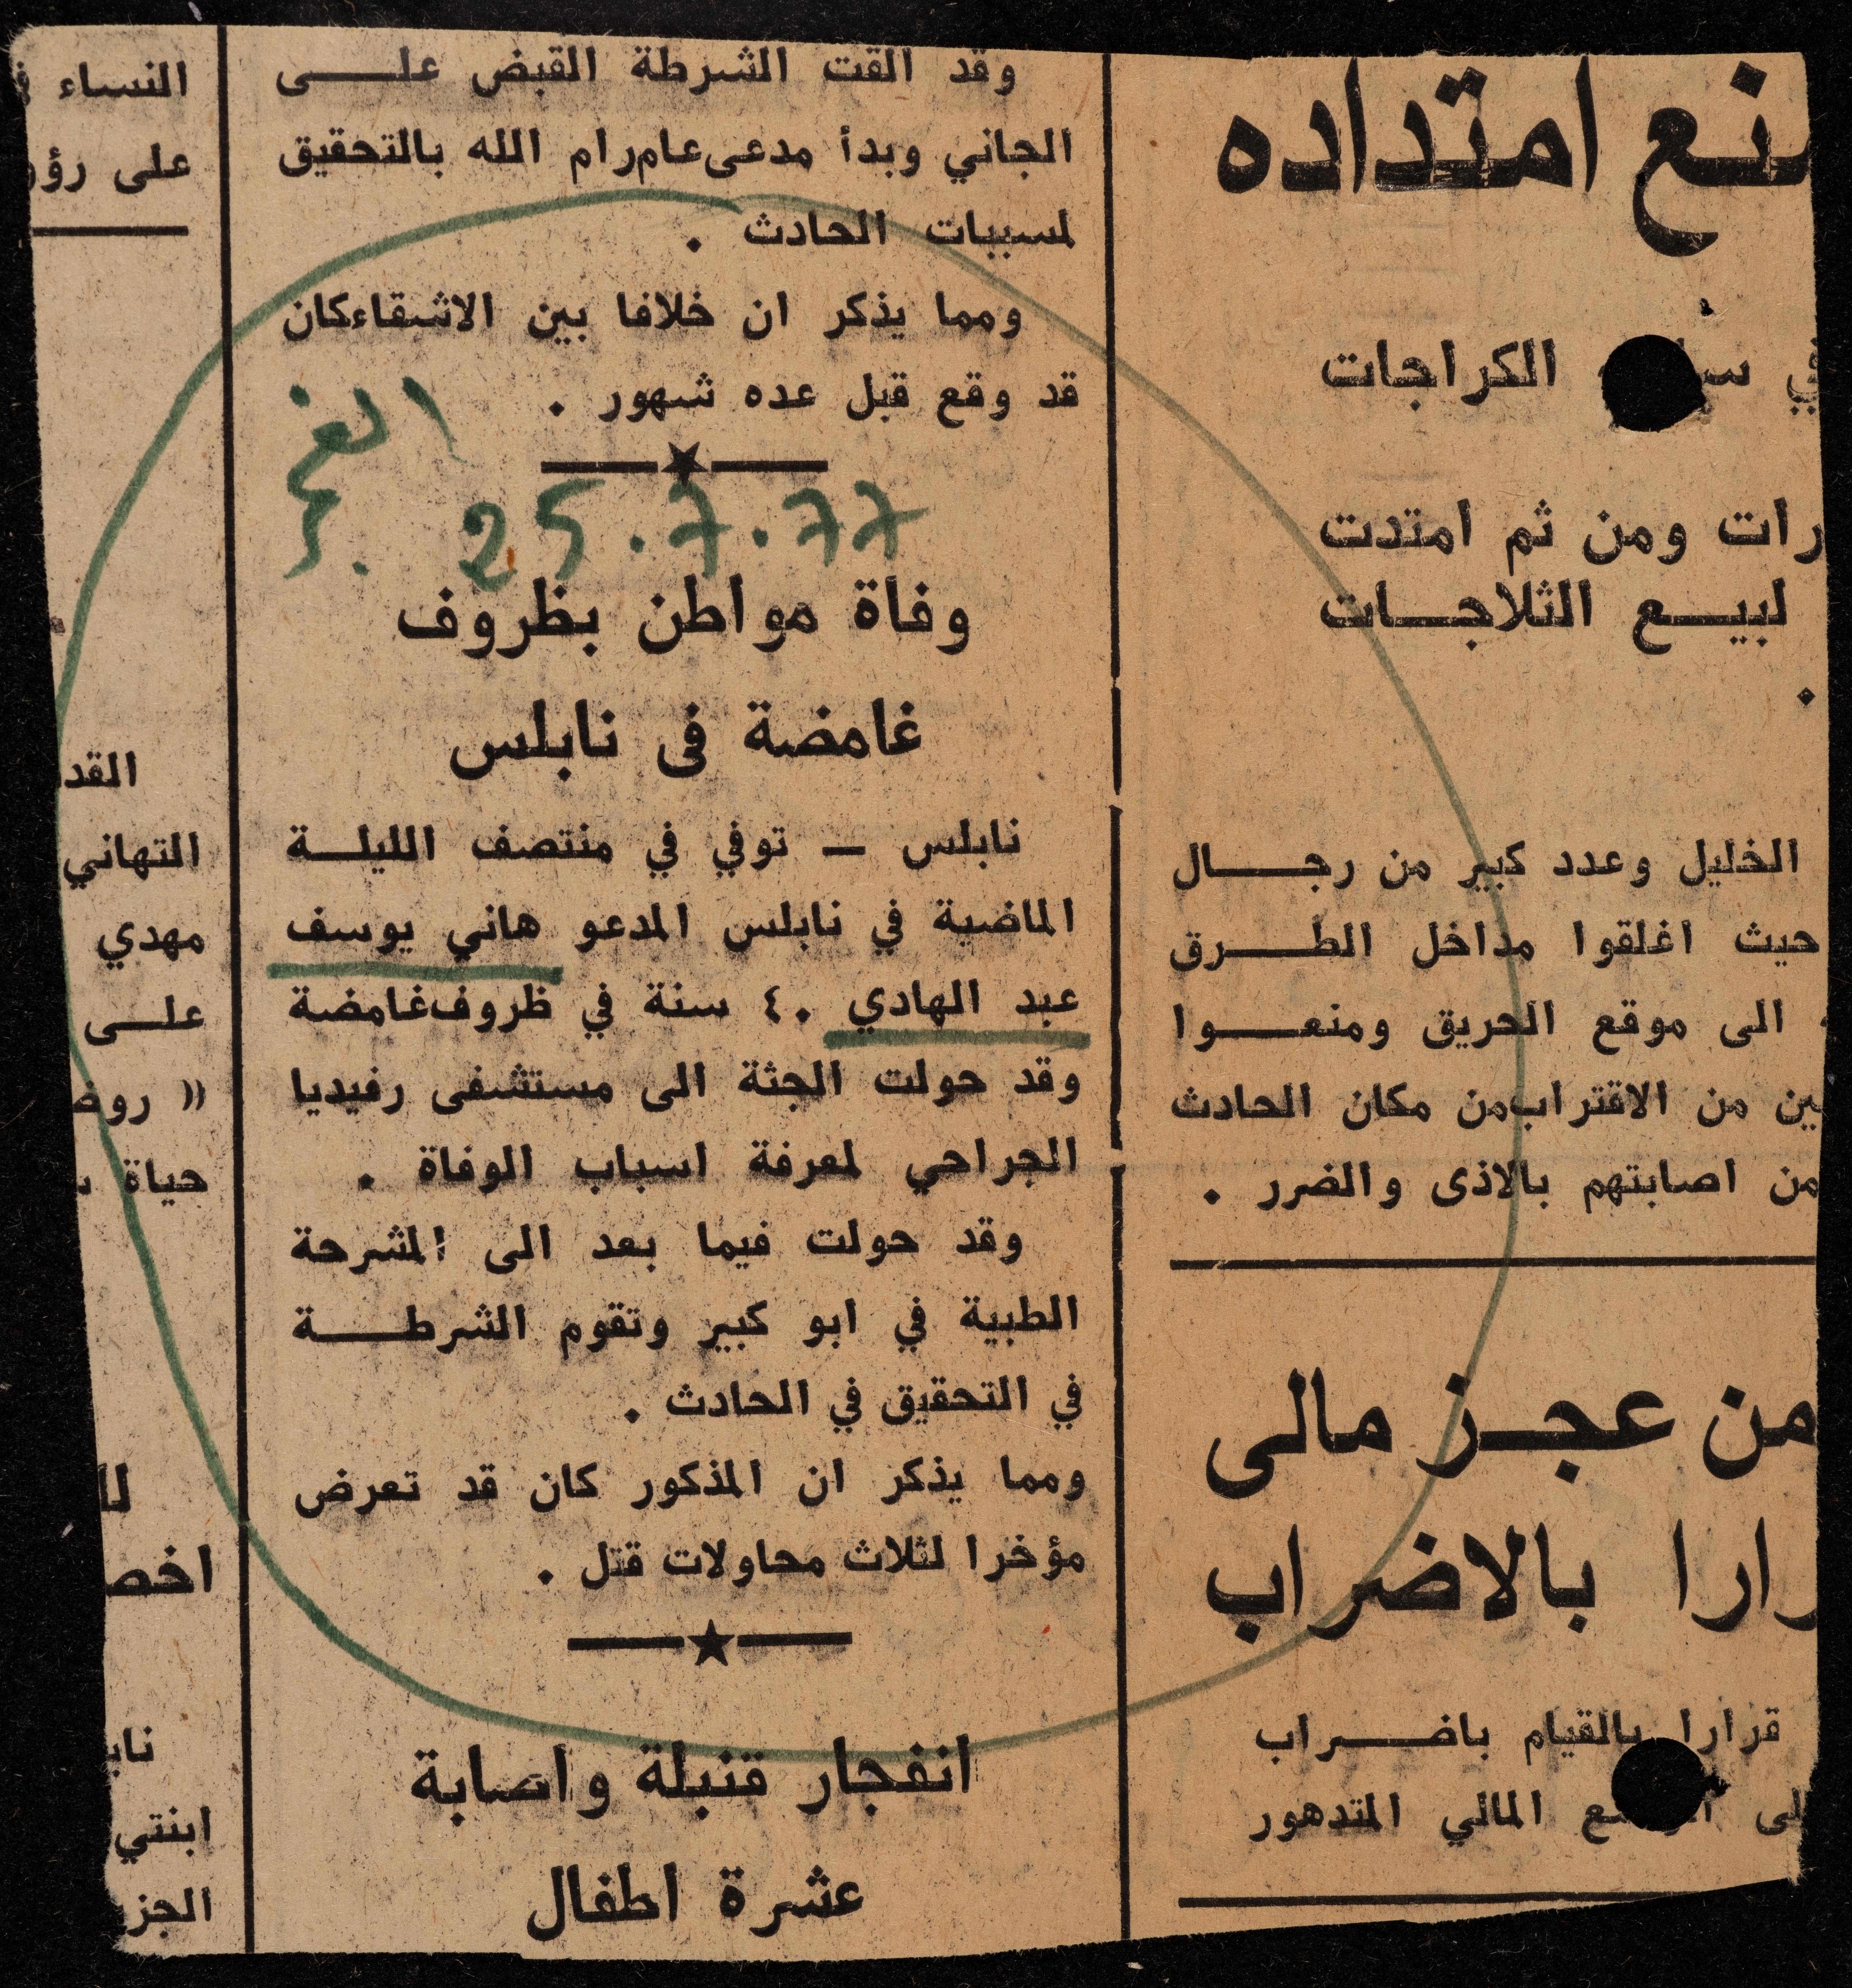 نع امتداده
في الكراجات
رات ومن ثم امتدت
لبيـــع الثلاجـــات
.
الخليل وعدد كبير من رجـــال
حيث اغلقوا مداخل الطـــرق
الى موقع الحريق ومنعـــوا
ين من الاقتراب من مكان الحادث
من اصابتهم بالاذى والضرر .
من عجـز مالى
رارا بالاضراب
قرارا بالقيام باضـــراب
المالي المتدهور
وقد القت الشرطة القبض علـــى
الجاني وبدأ مدعى عام رام الله بالتحقيق
لمسببات الحادث .
ومما يذكر ان خلافا بين الاشقاء كان
قد وقع قبل عده شهور .
الفجر
25.7.77
وفاة مواطن بظروف
غامضة فى نابلس
نابلس — توفي في منتصف الليلـــة
الماضية في نابلس المدعو هاني يوسف
عبد الهادي ٤٠ سنة في ظروف غامضة
وقد حولت الجثة الى مستشفى رفيديا
الجراحي لمعرفة اسباب الوفاة .
وقد حولت فيما بعد الى المشرحة
الطبية في ابو كبير وتقوم الشرطـــة
في التحقيق في الحادث .
ومما يذكر ان المذكور كان قد تعرض
مؤخرا لثلاث محاولات قتل .
انفجار قنبلة واصابة
عشرة اطفال
النساء
على
القد
التهاني
مهدي
علـــى
« روض
حياة
لل
اخص
ناب
ابنتي
الجز